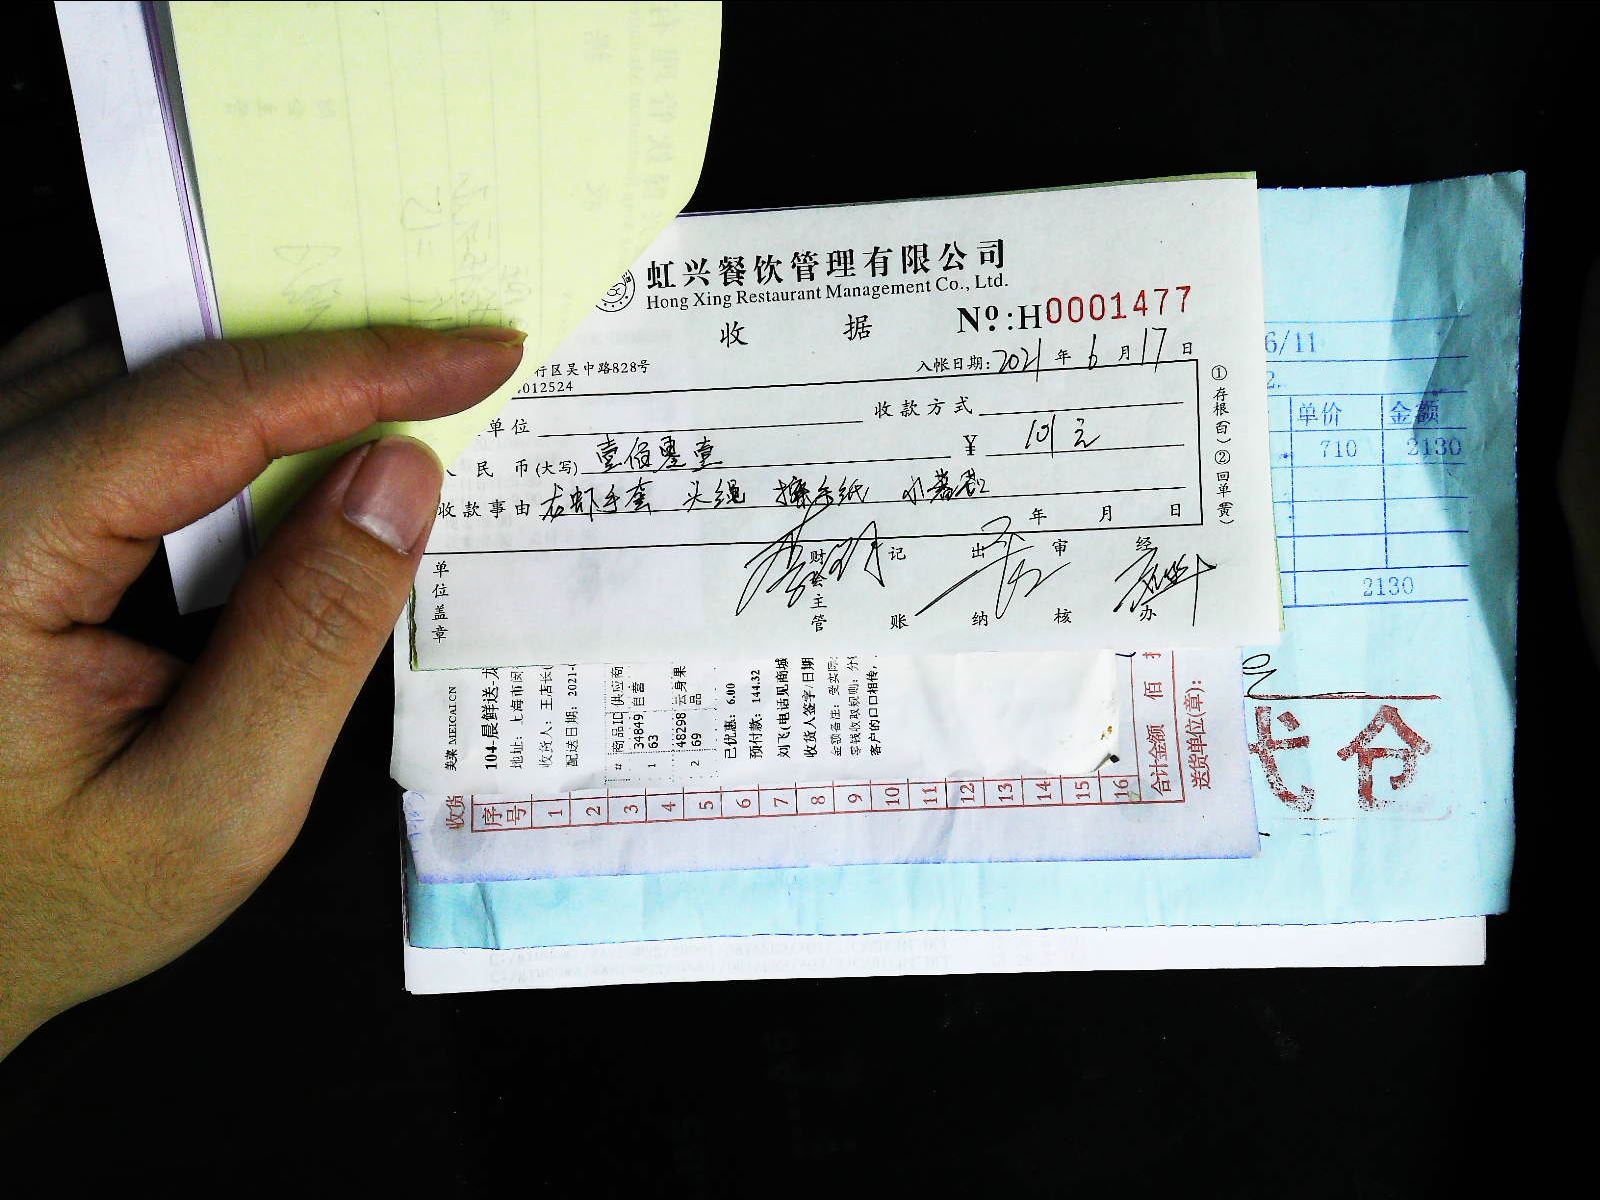 虹兴餐饮管理有限公司
Hong Xing Restaurant Management Co., Ltd.
收 据
Nº:H0001477
行区吴中路828号
012524
入帐日期:2021年6月17日
单位
收款方式
人民币(大写) 壹佰零壹
¥ 101元
收款事由 龙虾手套 头绳 擦手纸
年 月 日
①存根(白)②回单(黄)
单位盖章
财会主管
记账
出纳
审核
经办
6/11
2.
单价 金额
710 2130
2130
美菜 MEICAI.CN
104-晨鲜送-龙
地址: 上海市闵
收货人: 王店长
配送日期: 2021-
# 商品ID 供应商
1 3484963 自营
2 4829869 云身果品
已优惠: 6.00
预付款: 144.32
刘飞(电话见商城
收货人签字/日期
金额备注: 受实际
零钱收取规则: 分
客户的口口相传,
收货
序号
1
2
3
4
5
6
7
8
9
10
11
12
13
14
15
16
合计金额 佰
送货单位(章):